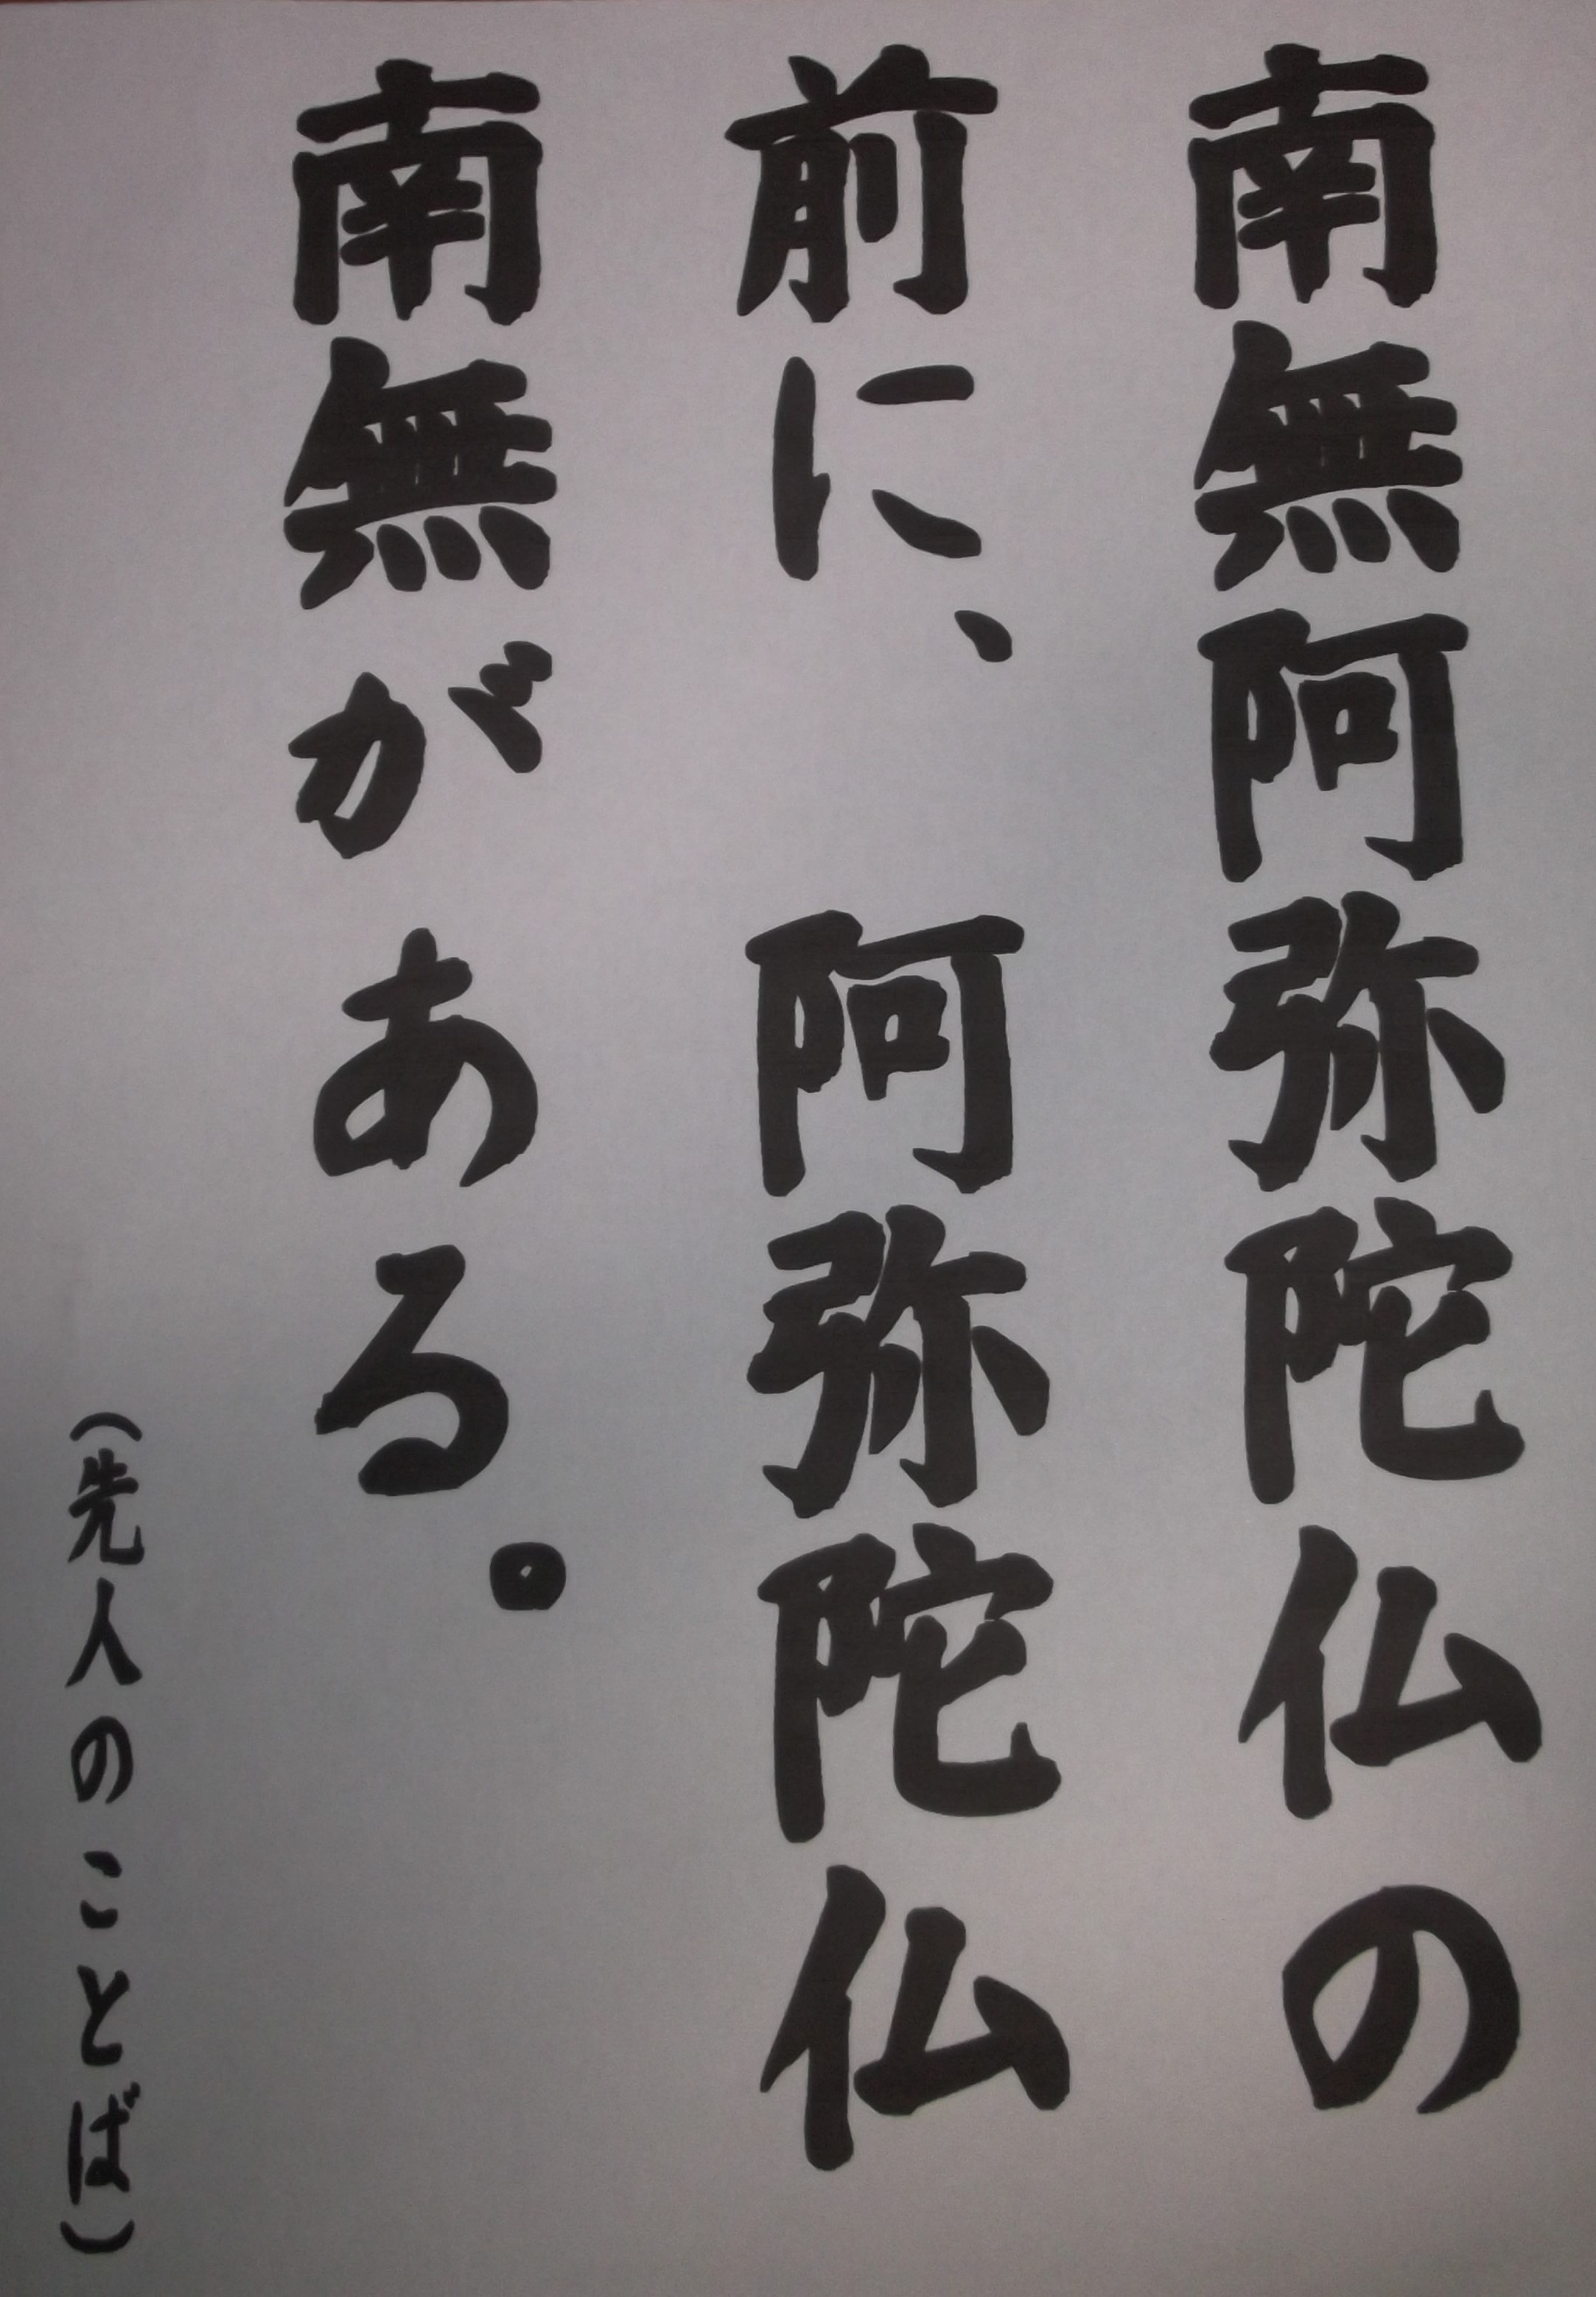 南無阿弥陀仏の
前に、阿弥陀仏
南無がある。
(先人のことば)